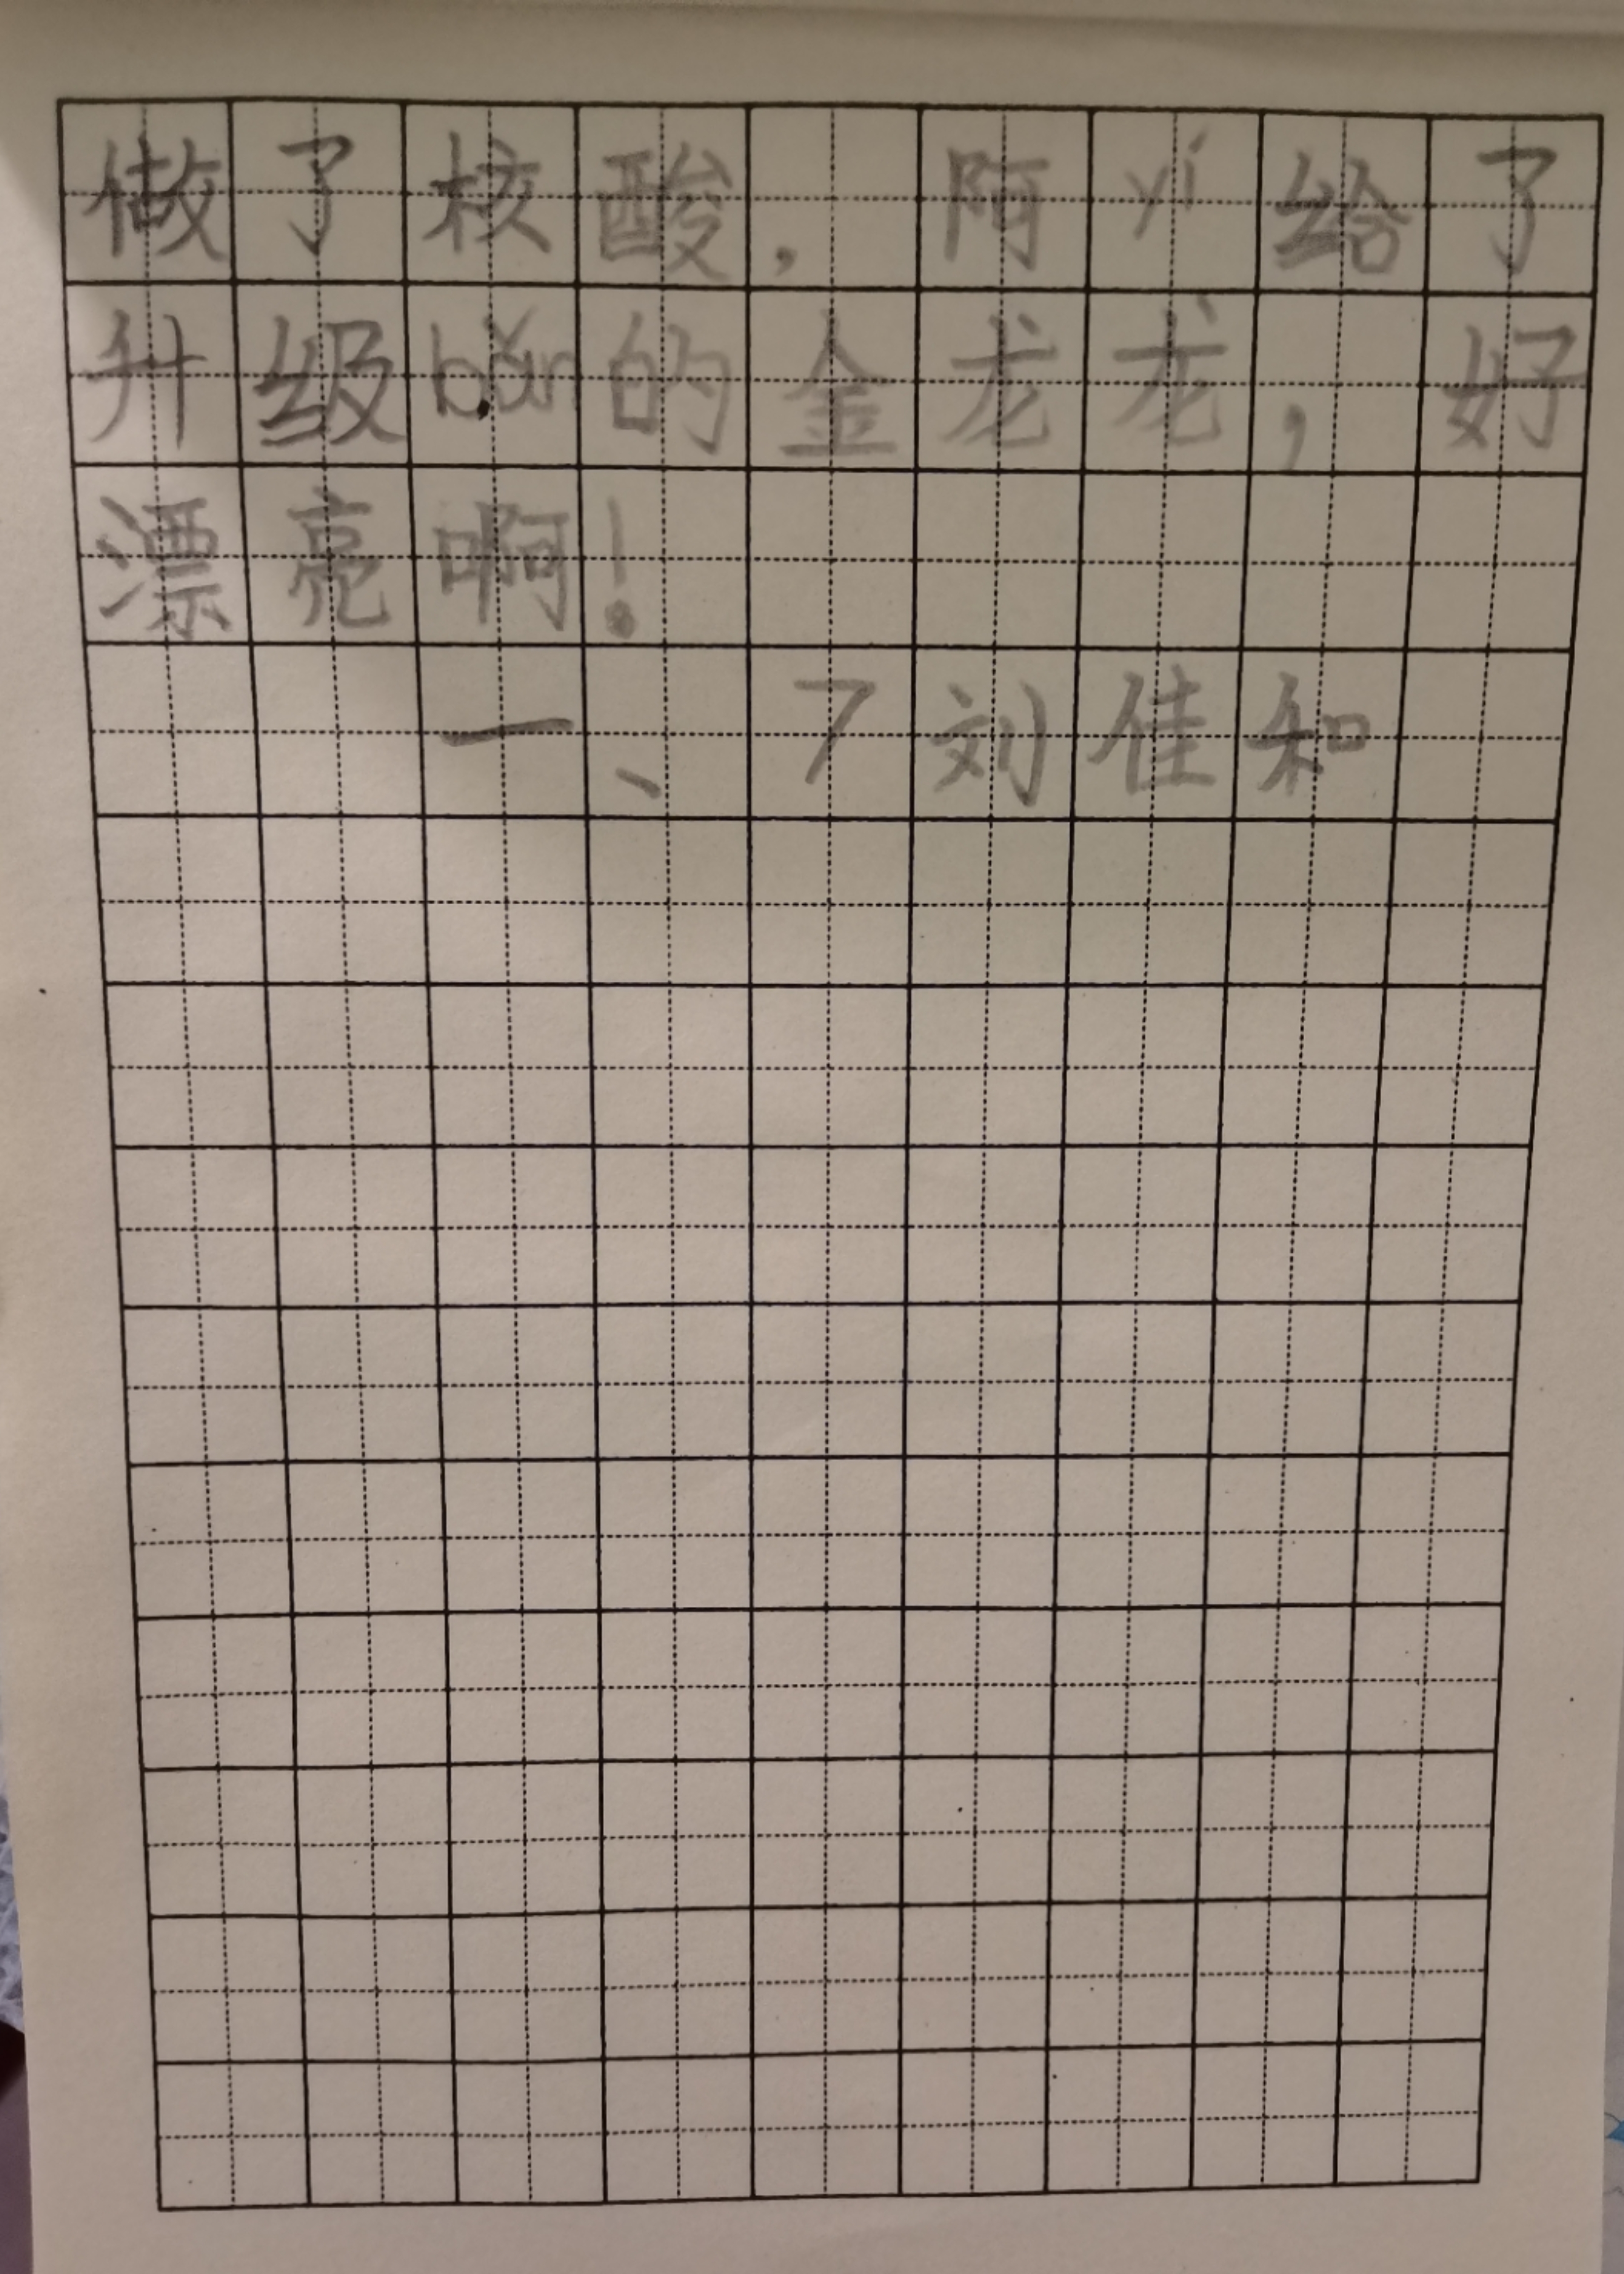 做了核酸，阿yí给了
升级bǎn的金龙龙，好
漂亮啊！
一、7刘佳和